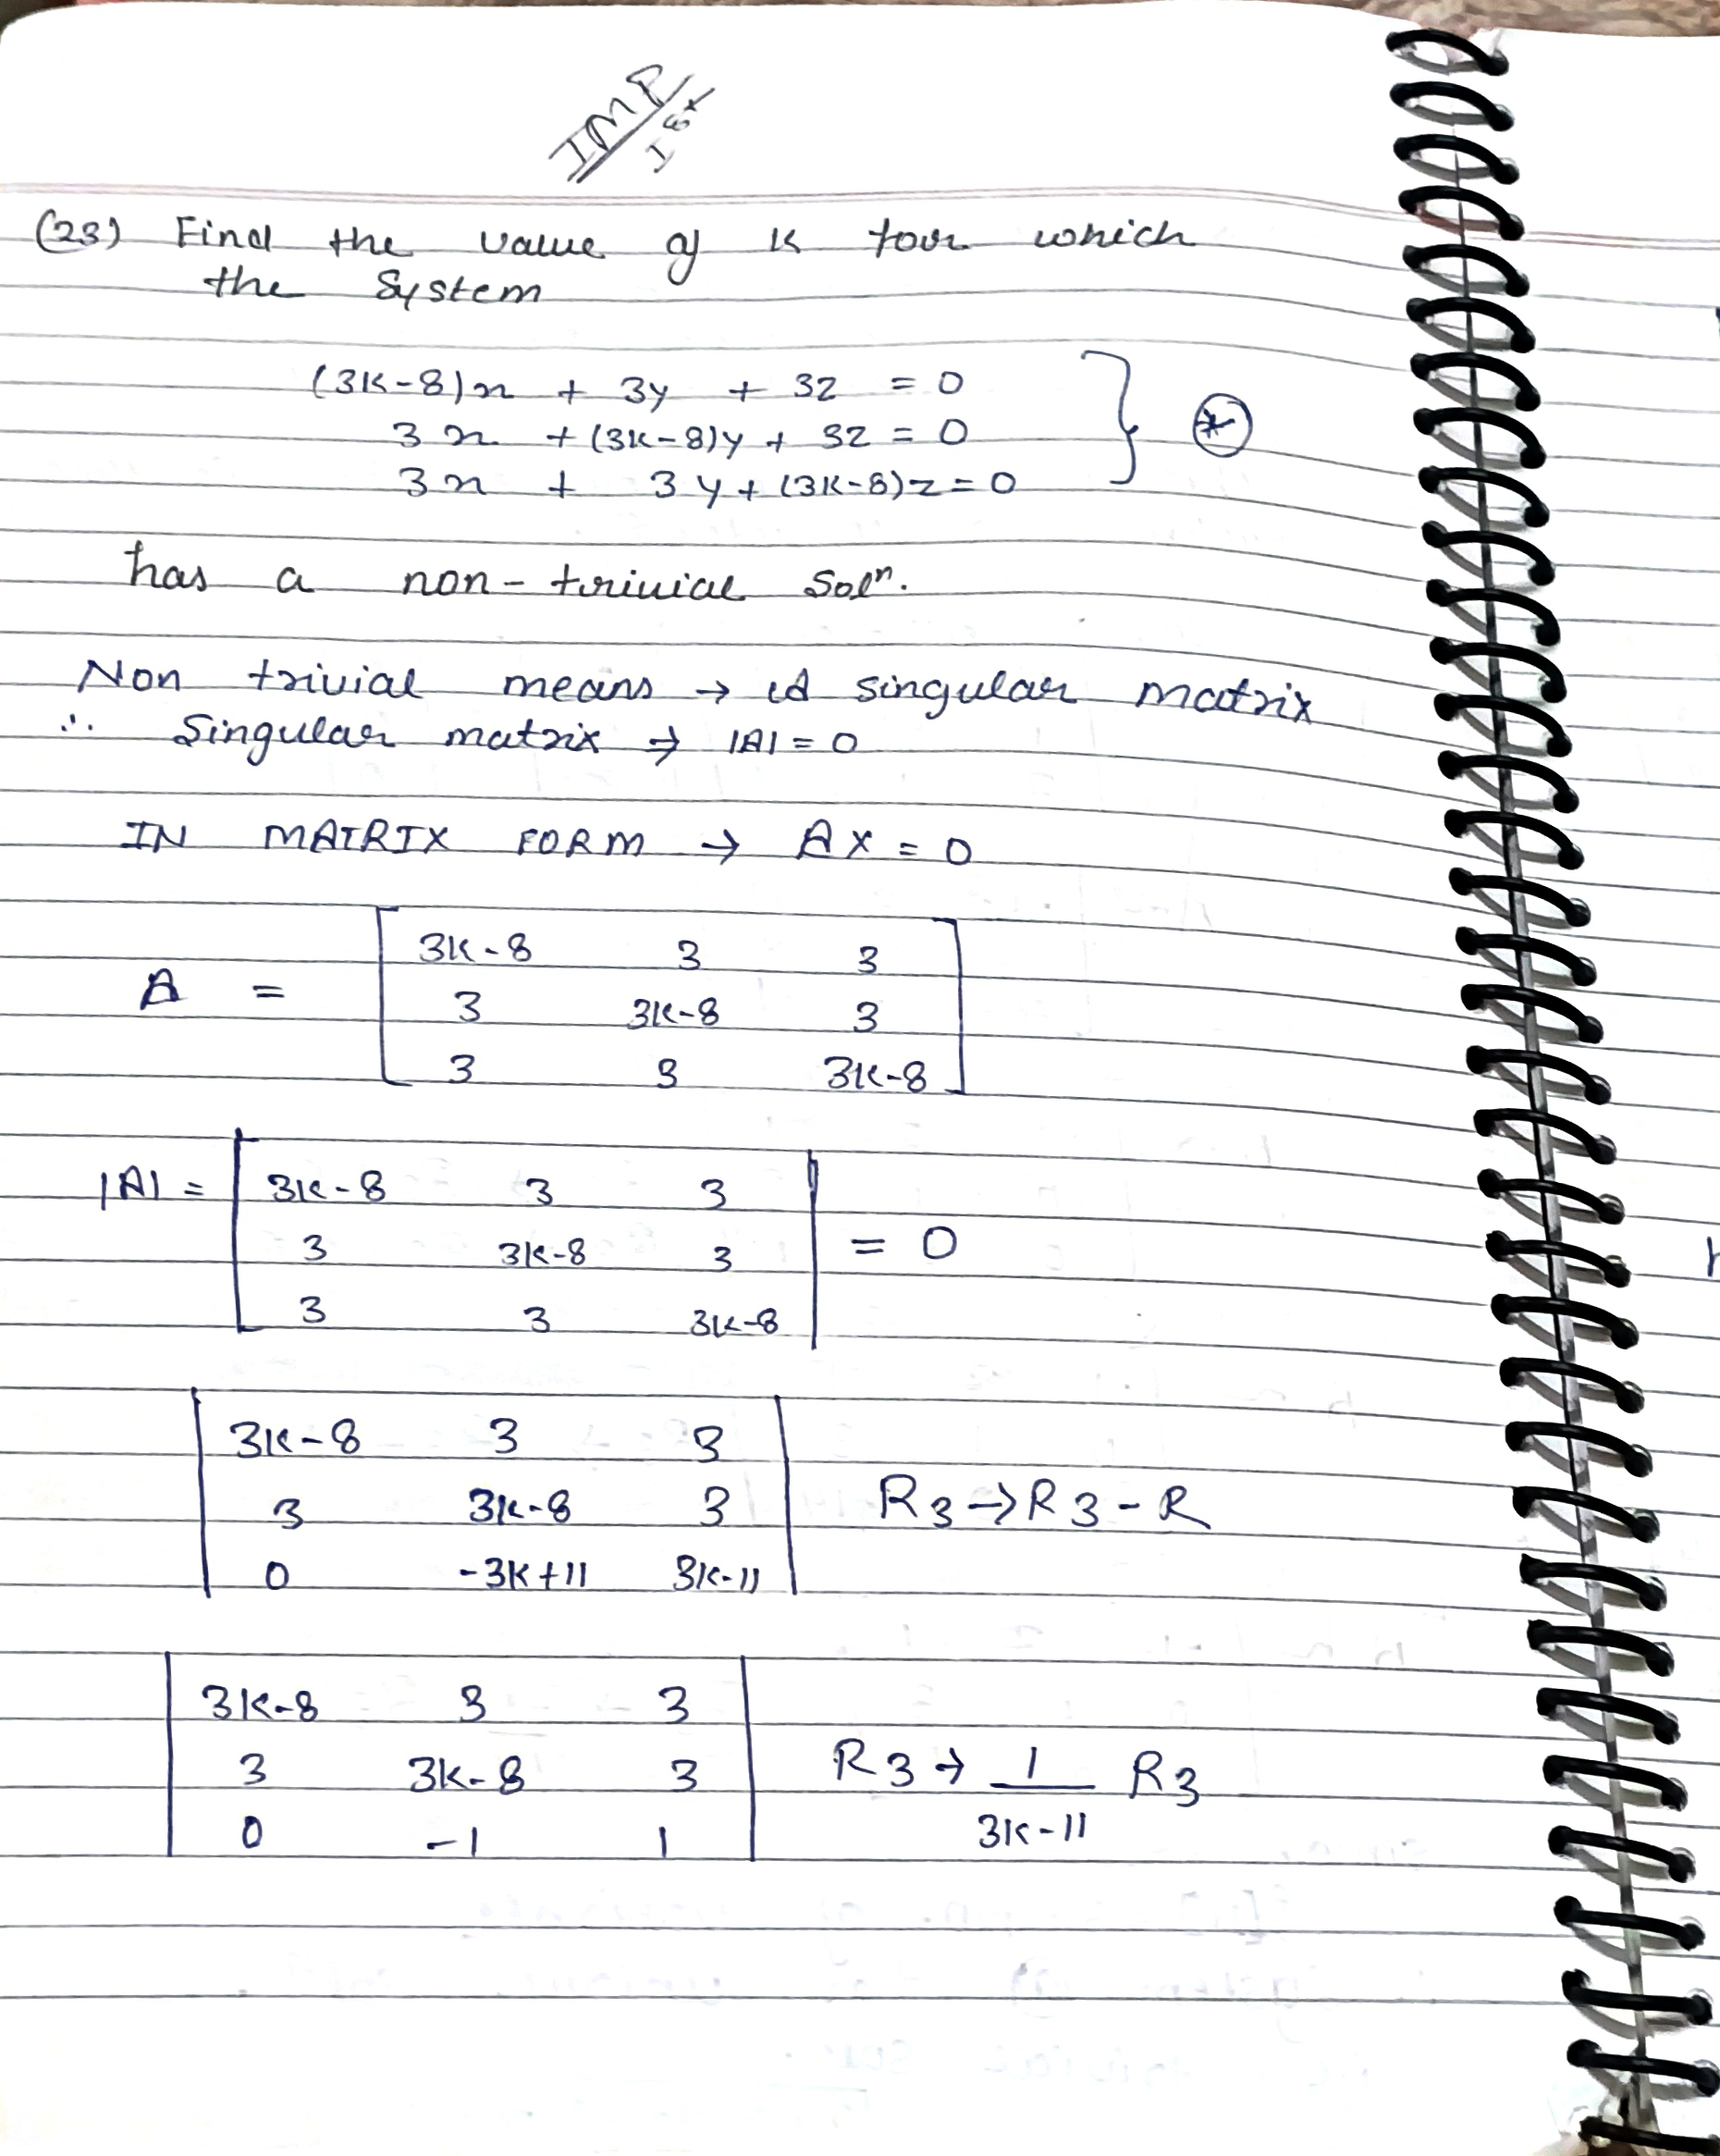 IMP
(23) Find the value of k for which
the System
(3k-8)x + 3y + 3z = 0
3x + (3k-8)y + 3z = 0
3x + 3y + (3k-8)z = 0
*
has a non-trivial Solⁿ.
Non trivial means → singular matrix
∴ Singular matrix → |A| = 0
IN MATRIX FORM → AX = 0
3k-8 3 3
A = 3 3k-8 3
3 3 3k-8
|A| = 3k-8 3 3
3 3k-8 3 = 0
3 3 3k-8
3k-8 3 3
3 3k-8 3 R3→R3-R
0 -3k+11 3k-11
3k-8 3 3
3 3k-8 3 R3→ 1/3k-11 R3
0 -1 1